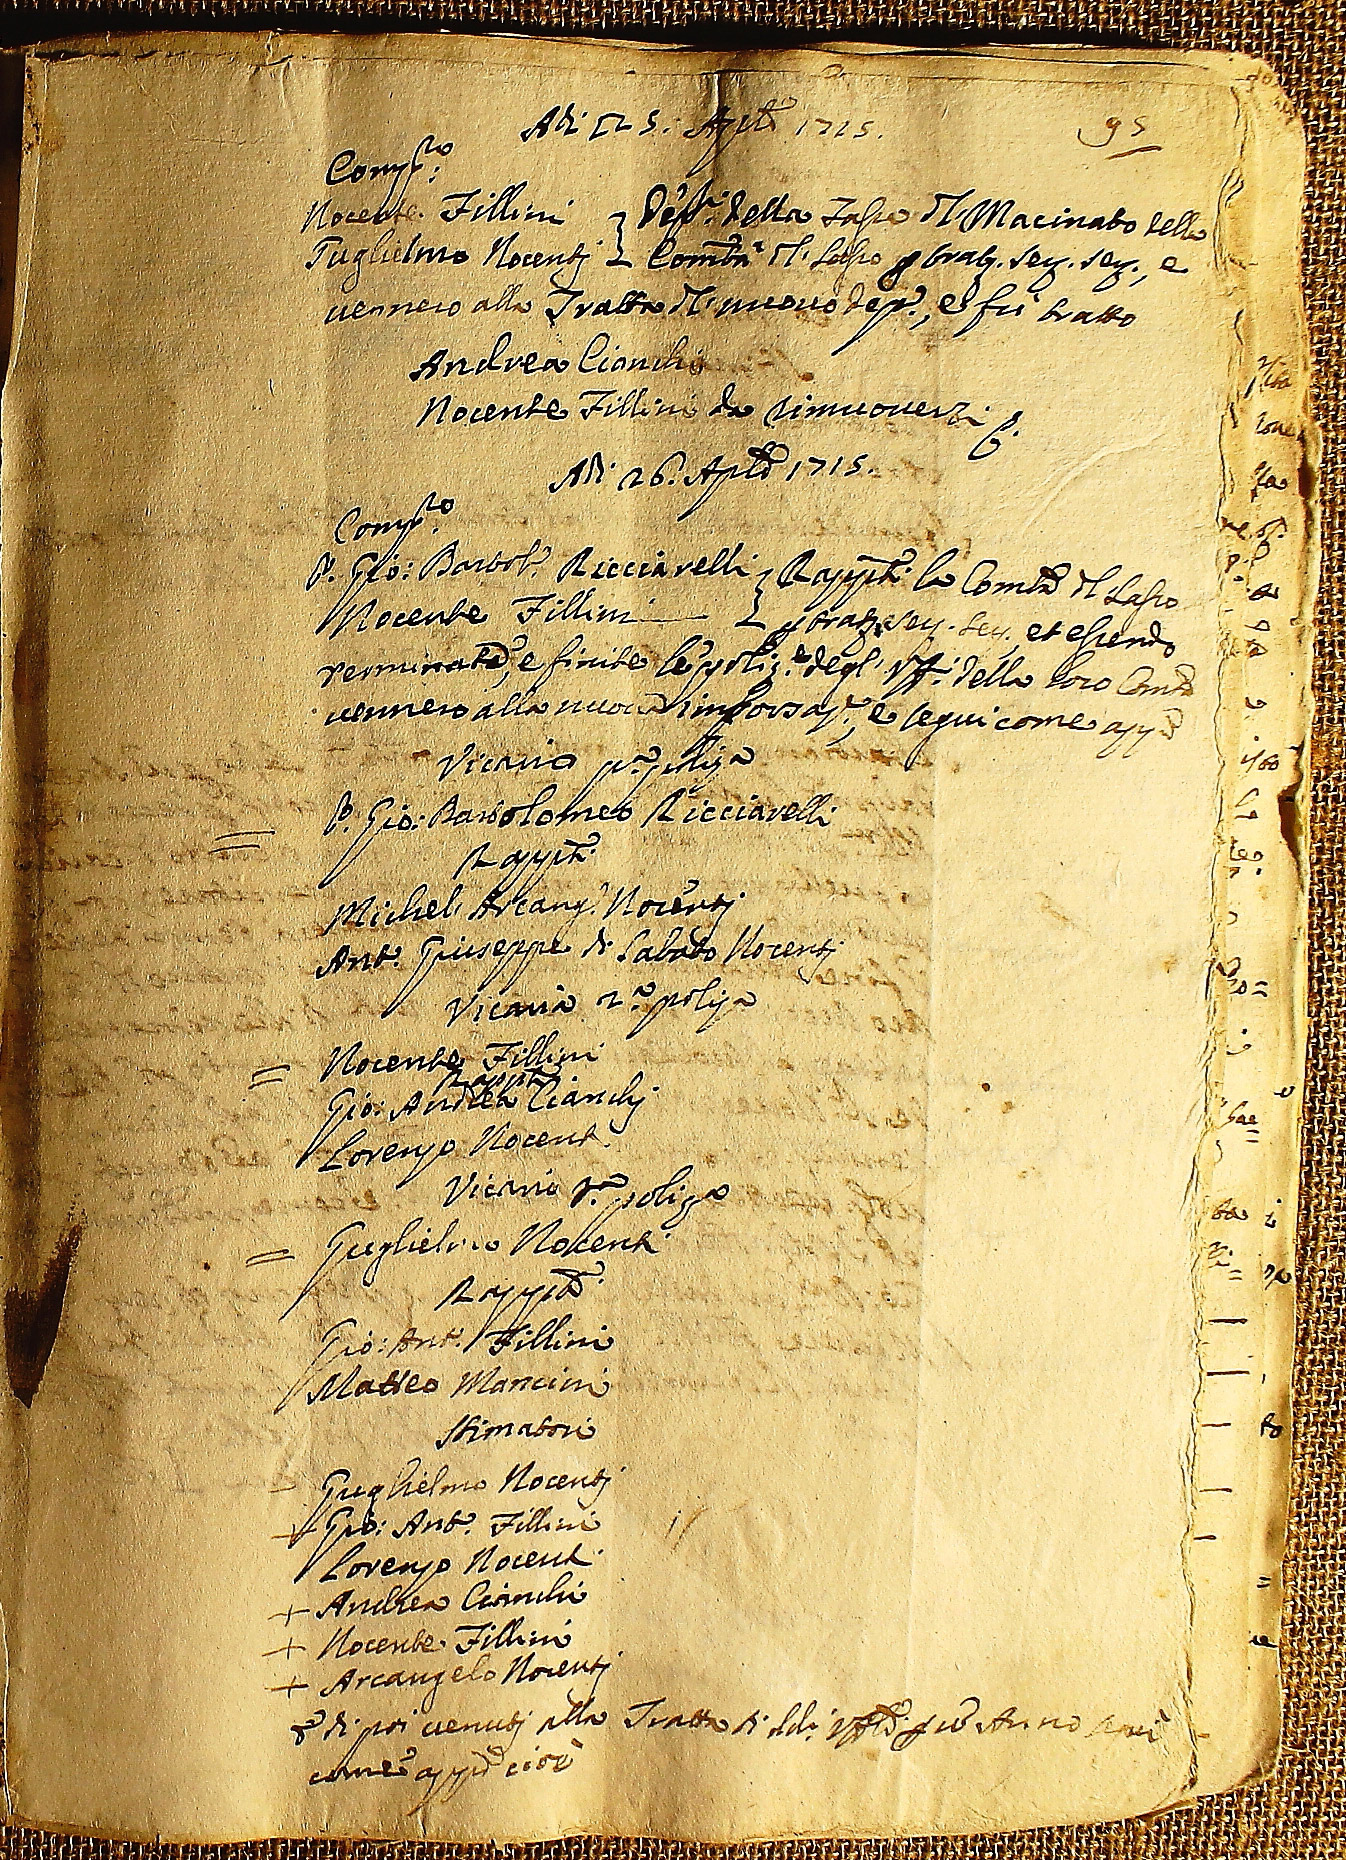 Adi 25. Aplē 1715.
95
Comp.ro
Nocente Fillini } Dep.ti della Tassa d'l Macinato della
Guglielmo Nocentj } Comtà d'l Sasso p tratt. seq. seq., e
uennero alla Tratta d'l nuouo dep.o, e fù tratto
Andrea Cianchi
Nocente Fillini da rimuouersi
Adi 26. Aplē 1715.
Comp.ro
P. Gio: Bartol. Ricciarelli } Rappti la Comtà d'l Sasso
Nocente Fillini } p tratt. seq. seq. et essendo
terminate, e finite le poliz.e degl' Uff.i della loro Comtà
uennero alla nuoua imborsaz.e, e seguì come app.o
Vicario p.a poliza
P. Gio: Bartolomeo Ricciarelli
Rappti
Michel' Arcang. Nocentj
Ant.o Giuseppe di Sabato Nocentj
Vicario 2.a poliza
Nocente Fillini
Rappti
Gio: Andrea Cianchj
Lorenzo Nocenti
Vicario 3.a poliza
Guglielmo Nocenti
Rappti
Gio: Ant.o Fillini
Matteo Mancini
Stimatori
Guglielmo Nocentj
Gio: Ant.o Fillini
Lorenzo Nocenti
+ Andrea Cianchi
+ Nocente Fillini
+ Arcangelo Nocentj
E di poi uenutj alla Tratta di dd.i Uff.li Anno
come app.o cioè